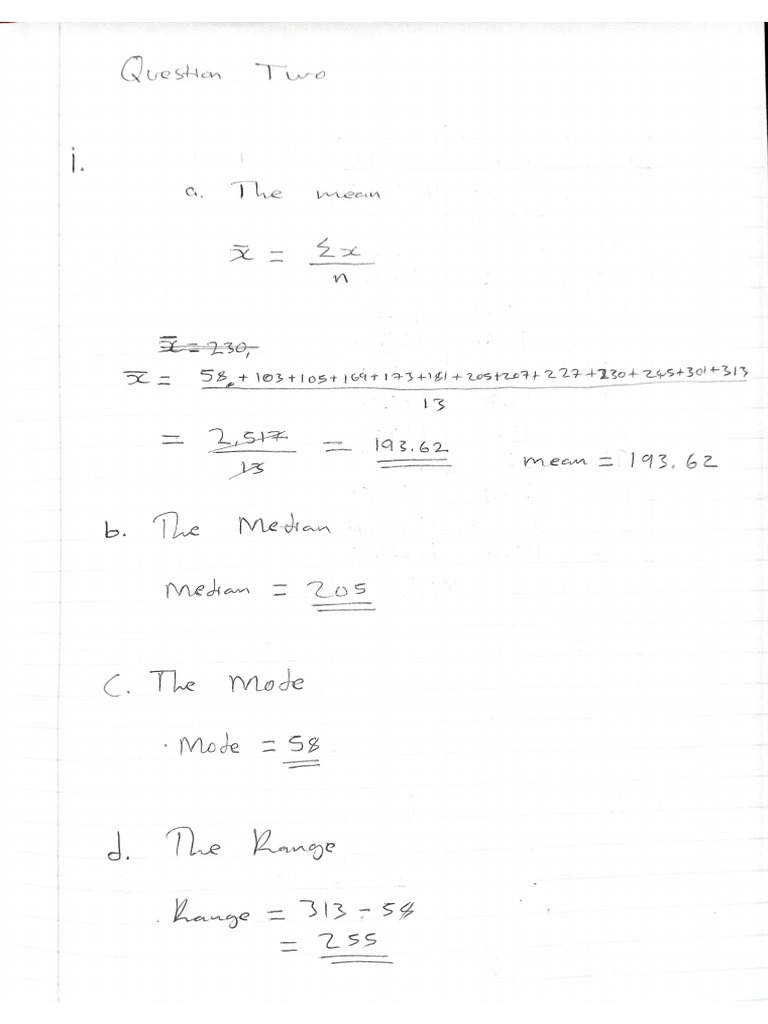 Question Two
i.
a. The mean
x̄ = Σx
n
x̄ = 230,
x̄ = 58 + 103+105+169+173+181+205+207+227+230+245+301+313
13
= 2,517 = 193.62
13
mean = 193.62
b. The Median
Median = 205
C. The Mode
. Mode = 58
d. The Range
. Range = 313 - 58
= 255